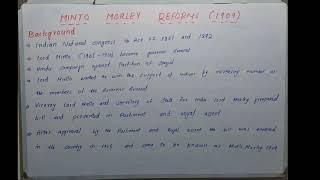 MINTO MORLEY REFORMS (1909)
Background
Indian National Congress Act of 1861 and 1892
Lord Minto (1905-1910) became governor general
campaign against Partition of Bengal
Lord Minto wanted to win the support of Indian by increasing number as
the members of the Governor General
Viceroy Lord Minto and Secretary of State for India Lord Morley prepared
bill and presented in Parliament and royal assent
After approval by the Parliament and Royal assent the bill was enforced
in the country in 1909 and came to be known as Minto Morley